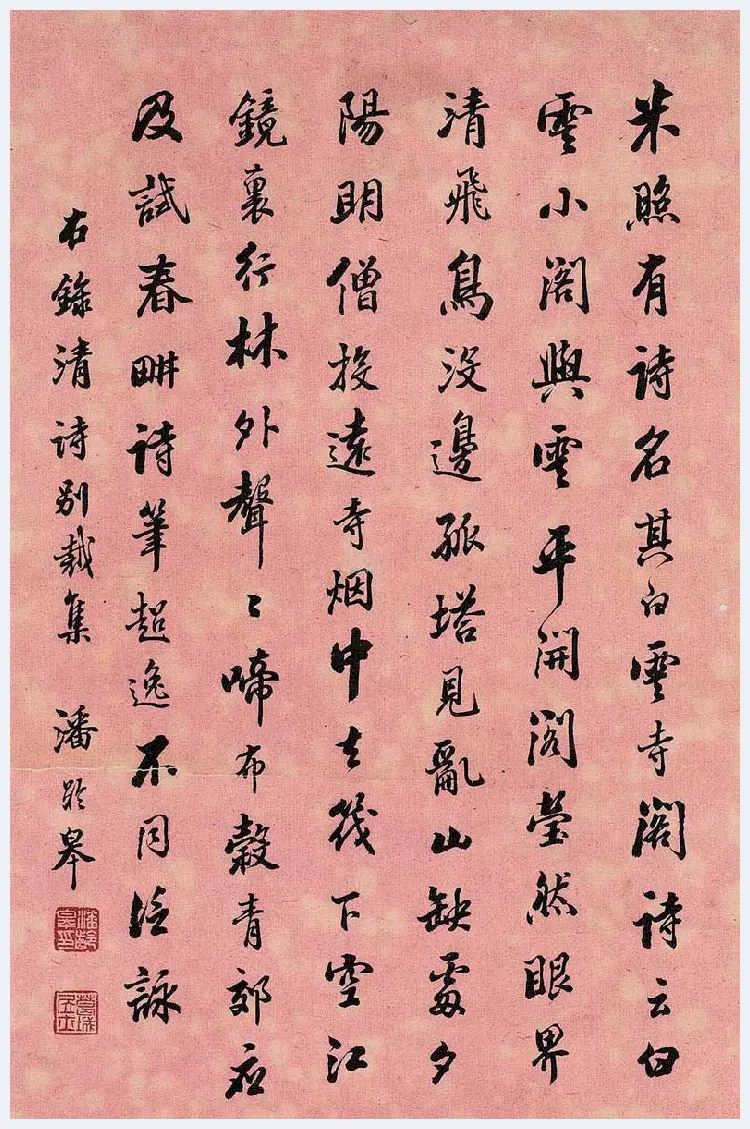 朱照有詩名其白雲寺閣詩云白
雲小閣與雲平開閣瑩然眼界
清飛鳥沒邊孤塔見亂山缺處夕
陽明僧投遠寺烟中去筏下空江
鏡裏行林外聲〻啼布穀青郊應
及試春畊詩筆超逸不同泛詠
右錄清詩別裁集 潘齡皋
潘齡皋印